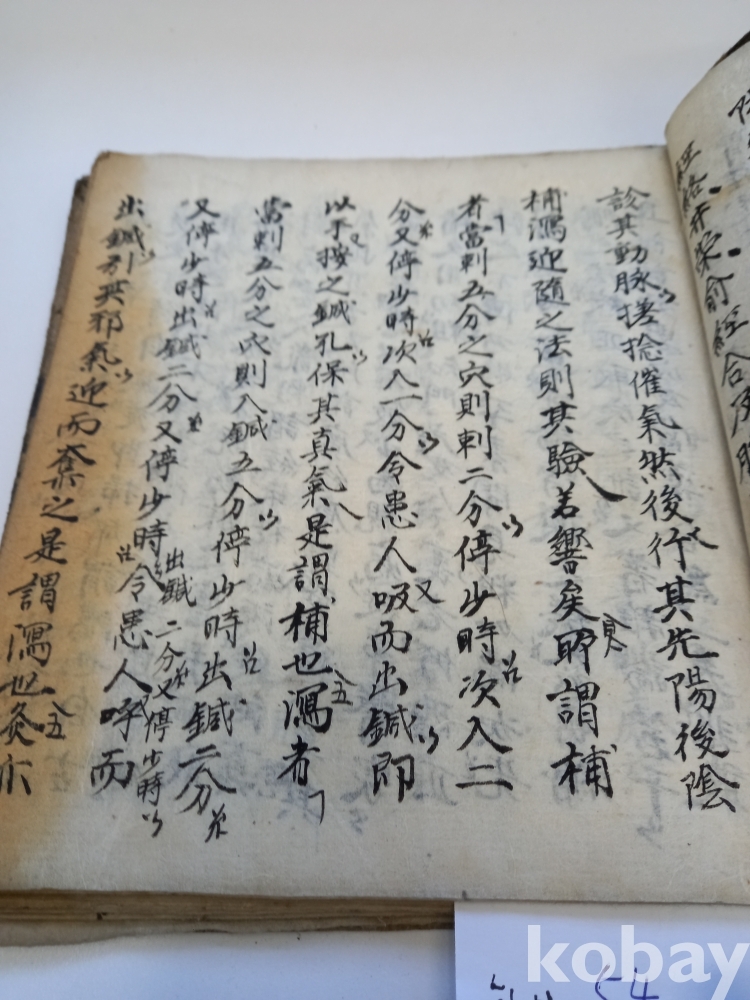 經絡井榮俞經合原
診其動脉搓捻催氣然後行其先陽後陰
補瀉迎隨之法則其驗若響矣所謂補
者當刺五分之穴則刺二分停少時次入二
分又停少時次入一分令患人吸而出鍼即
以手按之鍼孔保其真氣是謂補也瀉者
當刺五分之穴則入鍼五分停少時出鍼二分
又停少時出鍼二分又停少時令患人呼而
出鍼二分又停少時
出鍼引其邪氣迎而奪之是謂瀉也灸亦
54
kobay